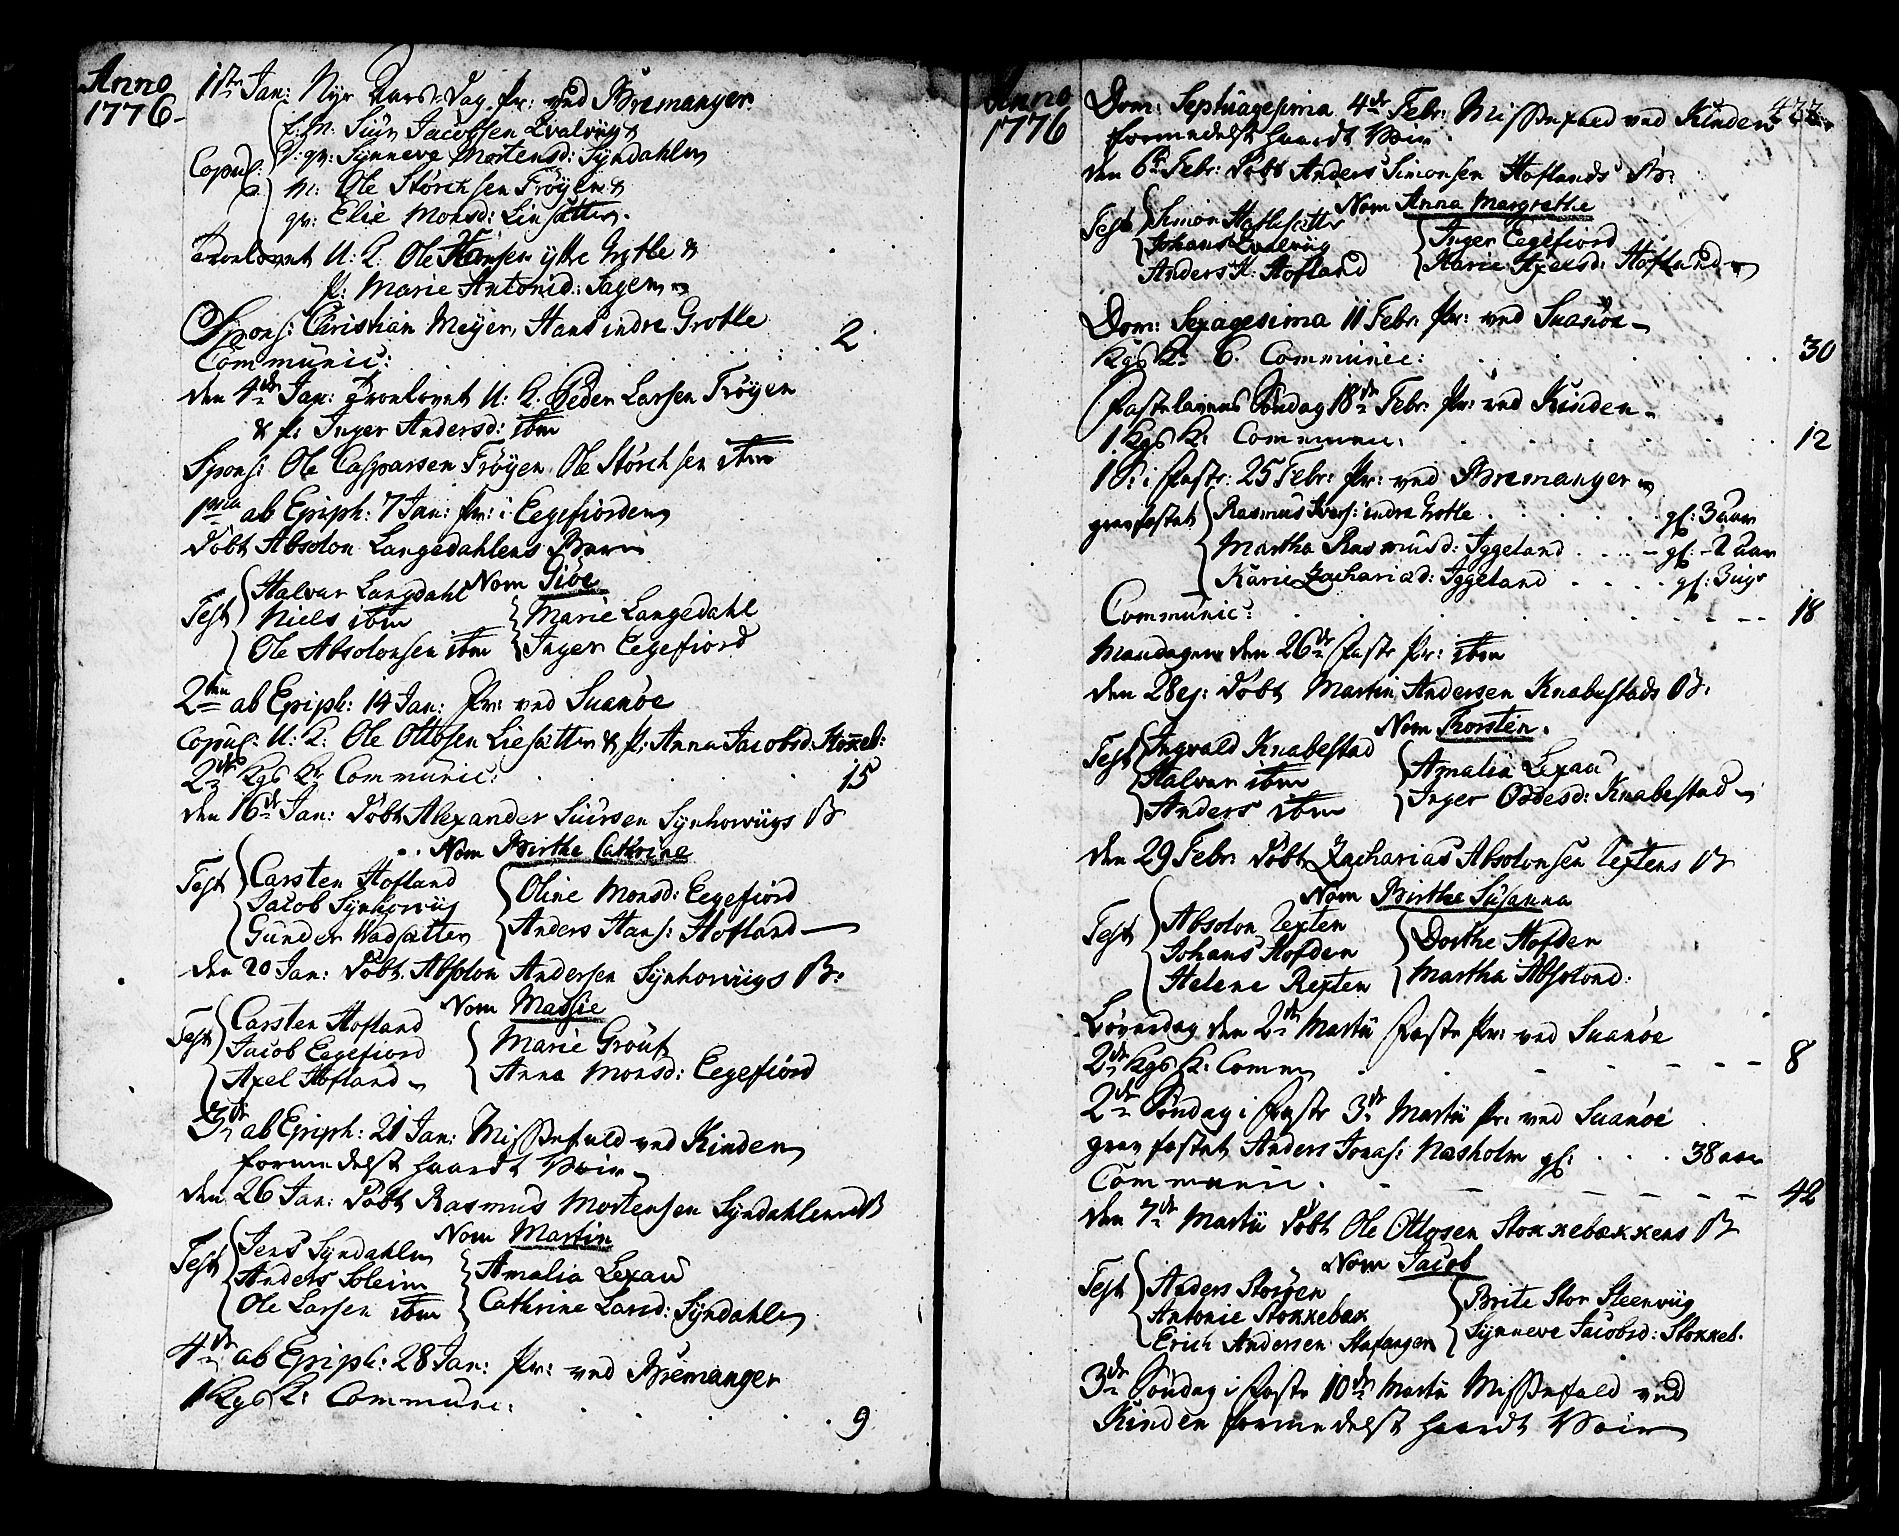 Anno
1776
1ste Jan: Nyt Aars-Dag Pr: ved Bremanger
Copul:
E: M: Siur Jacobsen Qvalviig &
P: qv: Synneve Mortensd: Syndahlen
M: Ole Storchsen Frøyen &
qv: Elie Monsd: Liesætter.
Troelovet U: K: Ole Hansen ytre Grotle &
P: Marie Antonid: Sagen
Spons: Christian Meyer, Hans indre Grotle
Communic: 2
den 4de Jan: Troelovet U: K. Peder Larsen Frøyen
& P: Inger Andersd: ibm
Spons: Ole Casparsen Frøyen, Ole Storchsen ibm
1ma ab Epiph: 7 Jan: Pr: i Eegefiorden
døbt Absolon Langedahlens Barn
Nom Giøe
Test
Halvar Langdahl
Niels ibm
Ole Absolonsen ibm
Marie Langedahl
Inger Eegefiord
2den ab Epiph: 14 Jan: Pr: ved Suanøe
Copul: U: K: Ole Ottosen Liesætter & P: Anna Jacobsd: Stokkeb:
2de Kgs K: Communic: 15
den 16de Jan: døbt Alexander Siursen Synhorviigs B
Nom Birthe Cathrine
Test
Carsten Hofland
Jacob Synhorviig
Gunder Wadsætter
Oline Monsd: Eegefiord
Anders Hans: Hofland
den 20 Jan: døbt Absolon Andersen Synhorviigs B:
Nom Massie
Test
Carsten Hofland
Jacob Eegefiord
Axel Hofland
Marie Grout
Anna Monsd: Eegefiord
3de ab Epiph: 21 Jan: Missefald ved Kinden
formedelst haardt Veir
den 26 Jan: døbt Rasmus Mortensen Syndahlens B
Nom Martin
Test
Jens Syndahlen
Anders Soleim
Ole Larsen ibm
Amalia Lexau
Cathrine Larsd: Syndahlen
4de ab Epiph: 28 Jan: Pr: ved Bremanger
1 Kgs K: Communic: 9
Anno
1776
422
Dom: Septuagesima 4de Febr: Missefald ved Kinden
formedelst haardt Veir
den 6te Febr: døbt Anders Simonsen Hoflands B:
Nom Anna Margrethe
Test
Simon Hoflesætter
Johans Qvalviig
Anders H: Hofland
Inger Eegefiord
Karie Axelsd: Hofland
Dom: Sexagesima 11 Febr: Pr: ved Suanøe
Kgs K: 6. Communic: 30
Fastelavens Søndag 18de Febr: Pr: ved Kinden
1 Kgs K: Communic: 12
1 S: i Fast: 25 Febr: Pr: ved Bremanger
gravfæstet
Rasmus Ivers: indre Grotle gl: 3 aar
Martha Rasmusd: Iggeland gl: 2 aar
Karie Zachariæd: Iggeland gl: 3 uger
Communic: 18
Mandagen den 26de Faste Pr: ibm
den 28 ej: døbt Martin Andersen Knabestads B:
Nom Thorsten.
Test
Ingvald Knabestad
Halvar ibm
Anders ibm
Amalia Lexau
Inger Oddesd: Knabestad
den 29 Febr: døbt Zacharias Absolonsen Rextens B
Nom Birthe Susanna
Test
Absolon Rexten
Johans Hofden
Helene Rexten
Dorthe Hofden
Martha Absolond:
Løverdag den 2de Martii Faste Pr: ved Suanøe
2de Kgs K: Comm 8
2de Søndag i Faste 3de Martii Pr: ved Suanøe
gravfæstet Anders Jonas: Næsholm gl: 38 aar
Communic. 42
den 7de Martii døbt Ole Ottosen Stokkebækkens B
Nom Jacob
Test
Anders Storøen
Antonie Stokkebæk
Erich Andersen Stafanger
Brite Stor Steenviig
Synneve Jacobsd: Stokkeb.
3de Søndag i Faste 10de Martii Missefald ved
Kinden formedelst haardt Veir